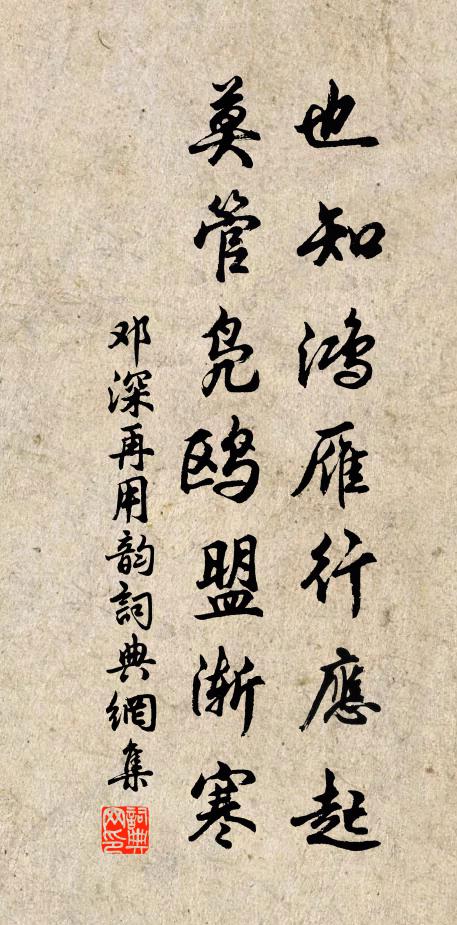 也知鸿雁行應起
莫管凫鸥盟渐寒
邓深再用韵詞典網集
詞典网印